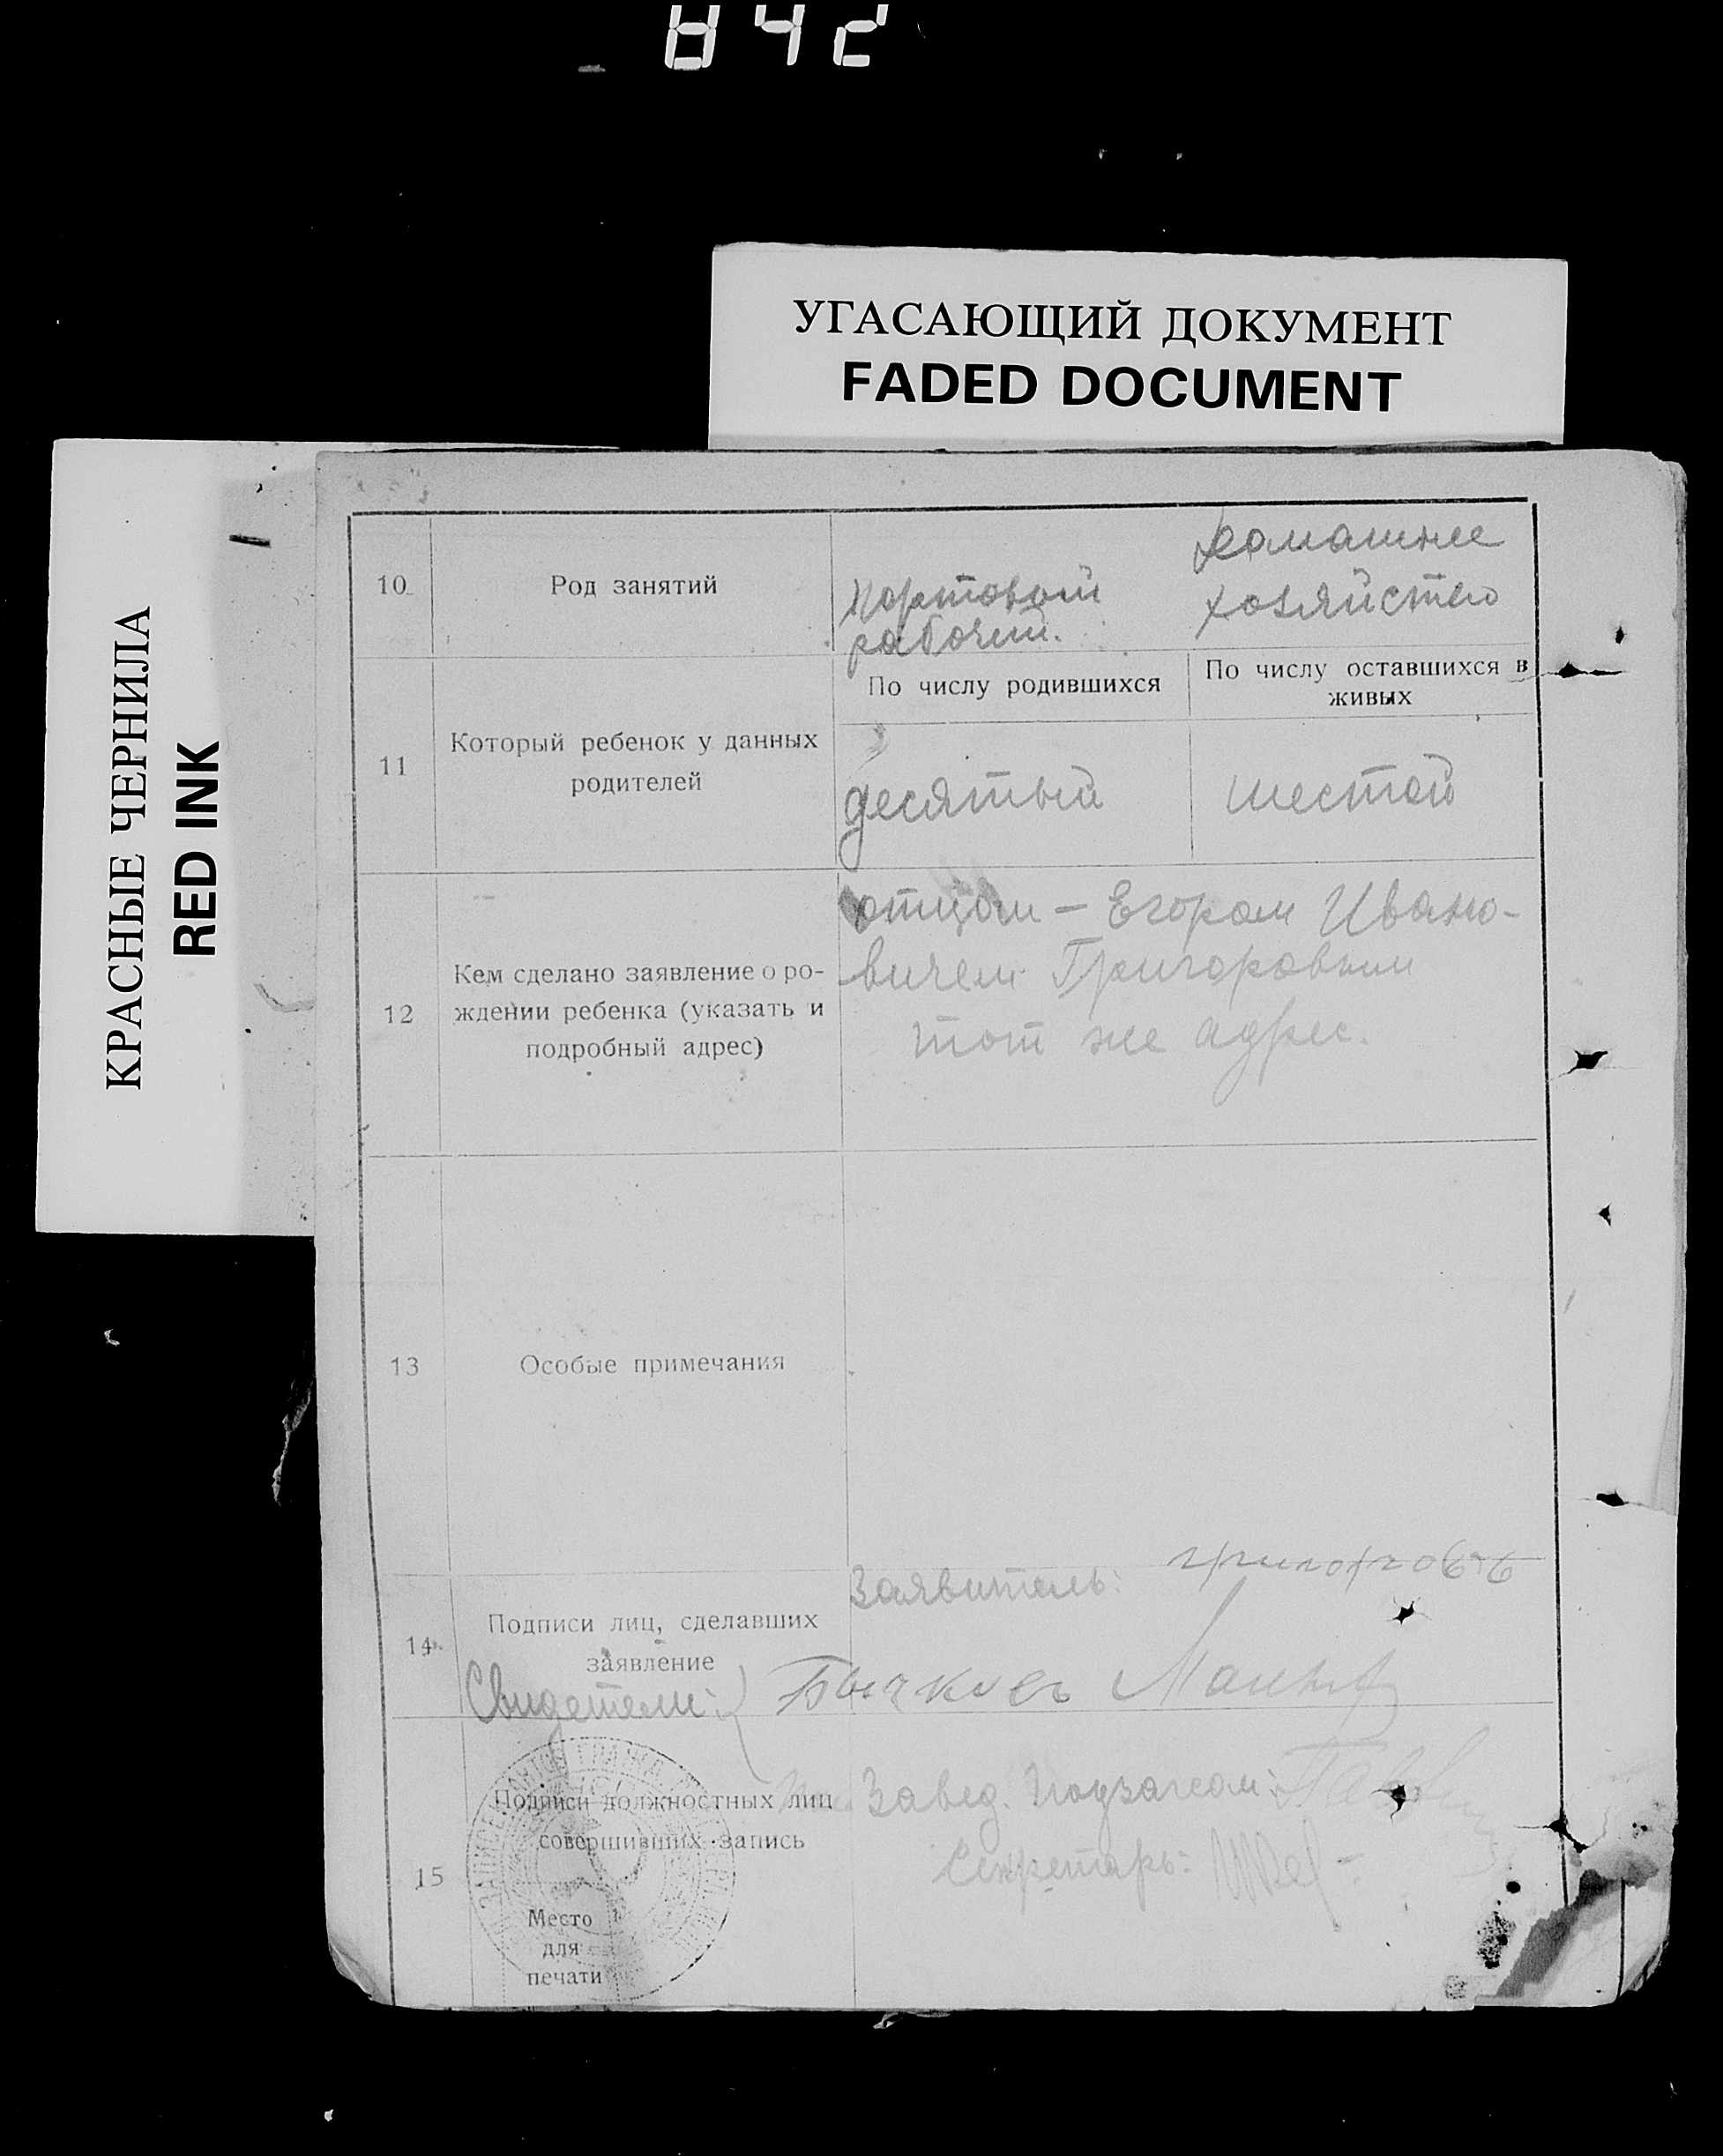 842
УГАСАЮЩИЙ ДОКУМЕНТ
FADED DOCUMENT
КРАСНЫЕ ЧЕРНИЛА
RED INK
10
Род занятий
портовый
рабочий.
домашнее
хозяйство
11
Который ребенок у данных
родителей
По числу родившихся
По числу оставшихся в
живых
десятый
шестой
12
Кем сделано заявление о ро-
ждении ребенка (указать и
подробный адрес)
отцом – Егором Ивано-
вичем Григоровым
тот же адрес.
13
Особые примечания
14
Подписи лиц, сделавших
заявление
Заявитель:
Свидетели:
15
Подписи должностных лиц
совершивших запись
Завед. Подзагсом:
Секретарь:
Место
для
печати